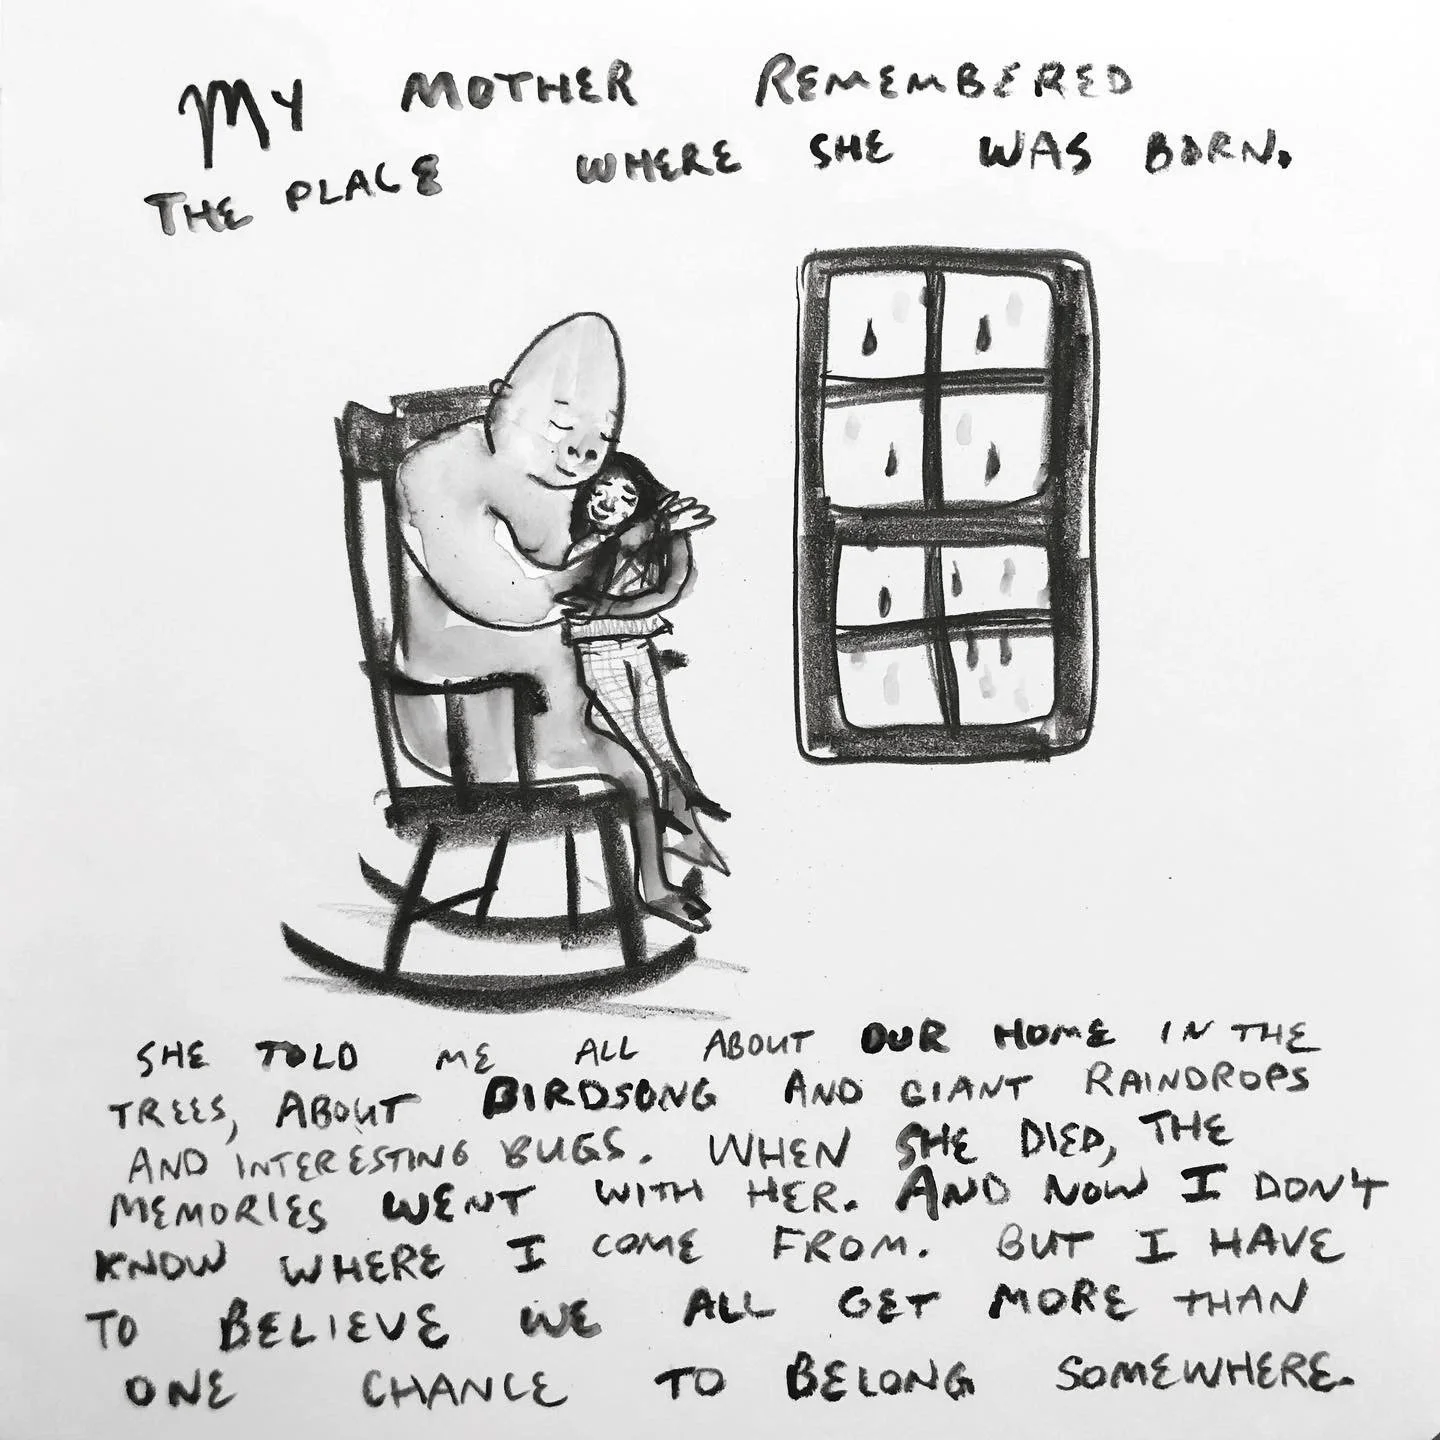 MY MOTHER REMEMBERED
THE PLACE WHERE SHE WAS BORN.
SHE TOLD ME ALL ABOUT OUR HOME IN THE
TREES, ABOUT BIRDSONG AND GIANT RAINDROPS
AND INTERESTING BUGS. WHEN SHE DIED, THE
MEMORIES WENT WITH HER. AND NOW I DON'T
KNOW WHERE I COME FROM. BUT I HAVE
TO BELIEVE WE ALL GET MORE THAN
ONE CHANCE TO BELONG SOMEWHERE.